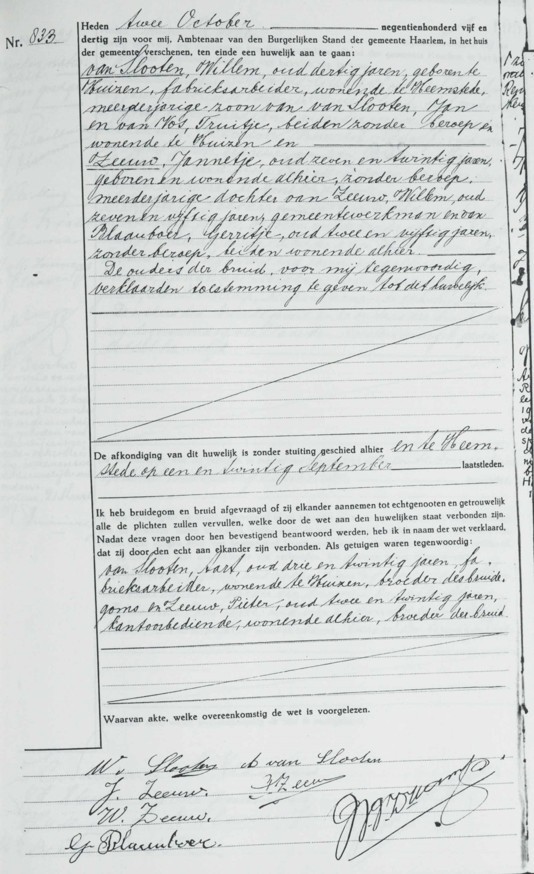 Nr. 833
Heden twee October negentienhonderd vijf en
dertig zijn voor mij, Ambtenaar van den Burgerlijken Stand der gemeente Haarlem, in het huis
der gemeente verschenen, ten einde een huwelijk aan te gaan:
van Slooten, Willem, oud dertig jaren, geboren te
Huizen, fabrieksarbeider, wonende te Heemstede,
meerderjarige zoon van van Slooten, Jan
en van Vos, Truitje, beiden zonder beroep en
wonende te Huizen en
Zeeuw, Jannetje, oud zeven en twintig jaren,
geboren en wonende alhier, zonder beroep,
meerderjarige dochter van Zeeuw, Willem, oud
zeven en vijftig jaren, gemeentewerkman en van
Blaauboer, Gerritje, oud twee en vijftig jaren,
zonder beroep, beiden wonende alhier
De ouders der bruid, voor mij tegenwoordig,
verklaarden toestemming te geven tot dit huwelijk
De afkondiging van dit huwelijk is zonder stuiting geschied alhier en te Heem-
stede op een en twintig September laatstleden.
Ik heb bruidegom en bruid afgevraagd of zij elkander aannemen tot echtgenooten en getrouwelijk
alle de plichten zullen vervullen, welke door de wet aan den huwelijken staat verbonden zijn.
Nadat deze vragen door hen bevestigend beantwoord werden, heb ik in naam der wet verklaard,
dat zij door den echt aan elkander zijn verbonden. Als getuigen waren tegenwoordig:
van Slooten, Aart, oud drie en twintig jaren, fa-
brieksarbeider, wonende te Huizen, broeder des bruide-
goms en Zeeuw, Pieter, oud twee en twintig jaren,
kantoorbediende, wonende alhier, broeder der bruid
Waarvan akte, welke overeenkomstig de wet is voorgelezen.
W v Slooten A van Slooten
J. Zeeuw. P Zeeuw
W. Zeeuw.
G Blaauboer.